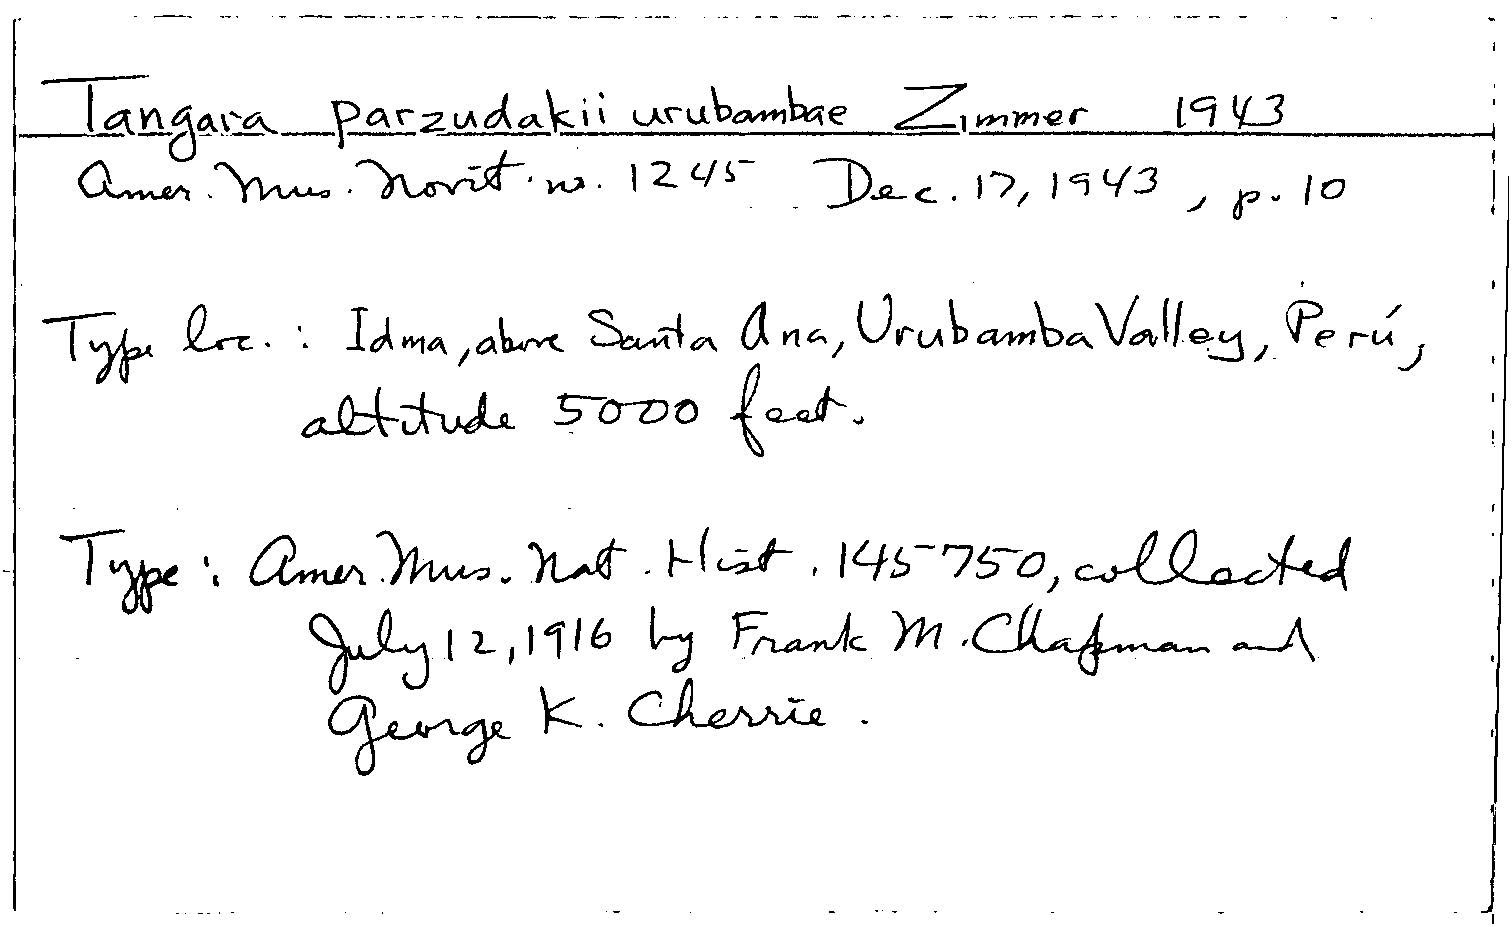 Tangara parzudakii urubambae Zimmer 1943
Amer. Mus. Novit. no. 1245 Dec. 17, 1943, p. 10
Type loc. : Idma, above Santa Ana, Urubamba Valley, Perú,
altitude 5000 feet.
Type: Amer. Mus. Nat. Hist. 145750, collected
July 12, 1916 by Frank M. Chapman and
George K. Cherrie.